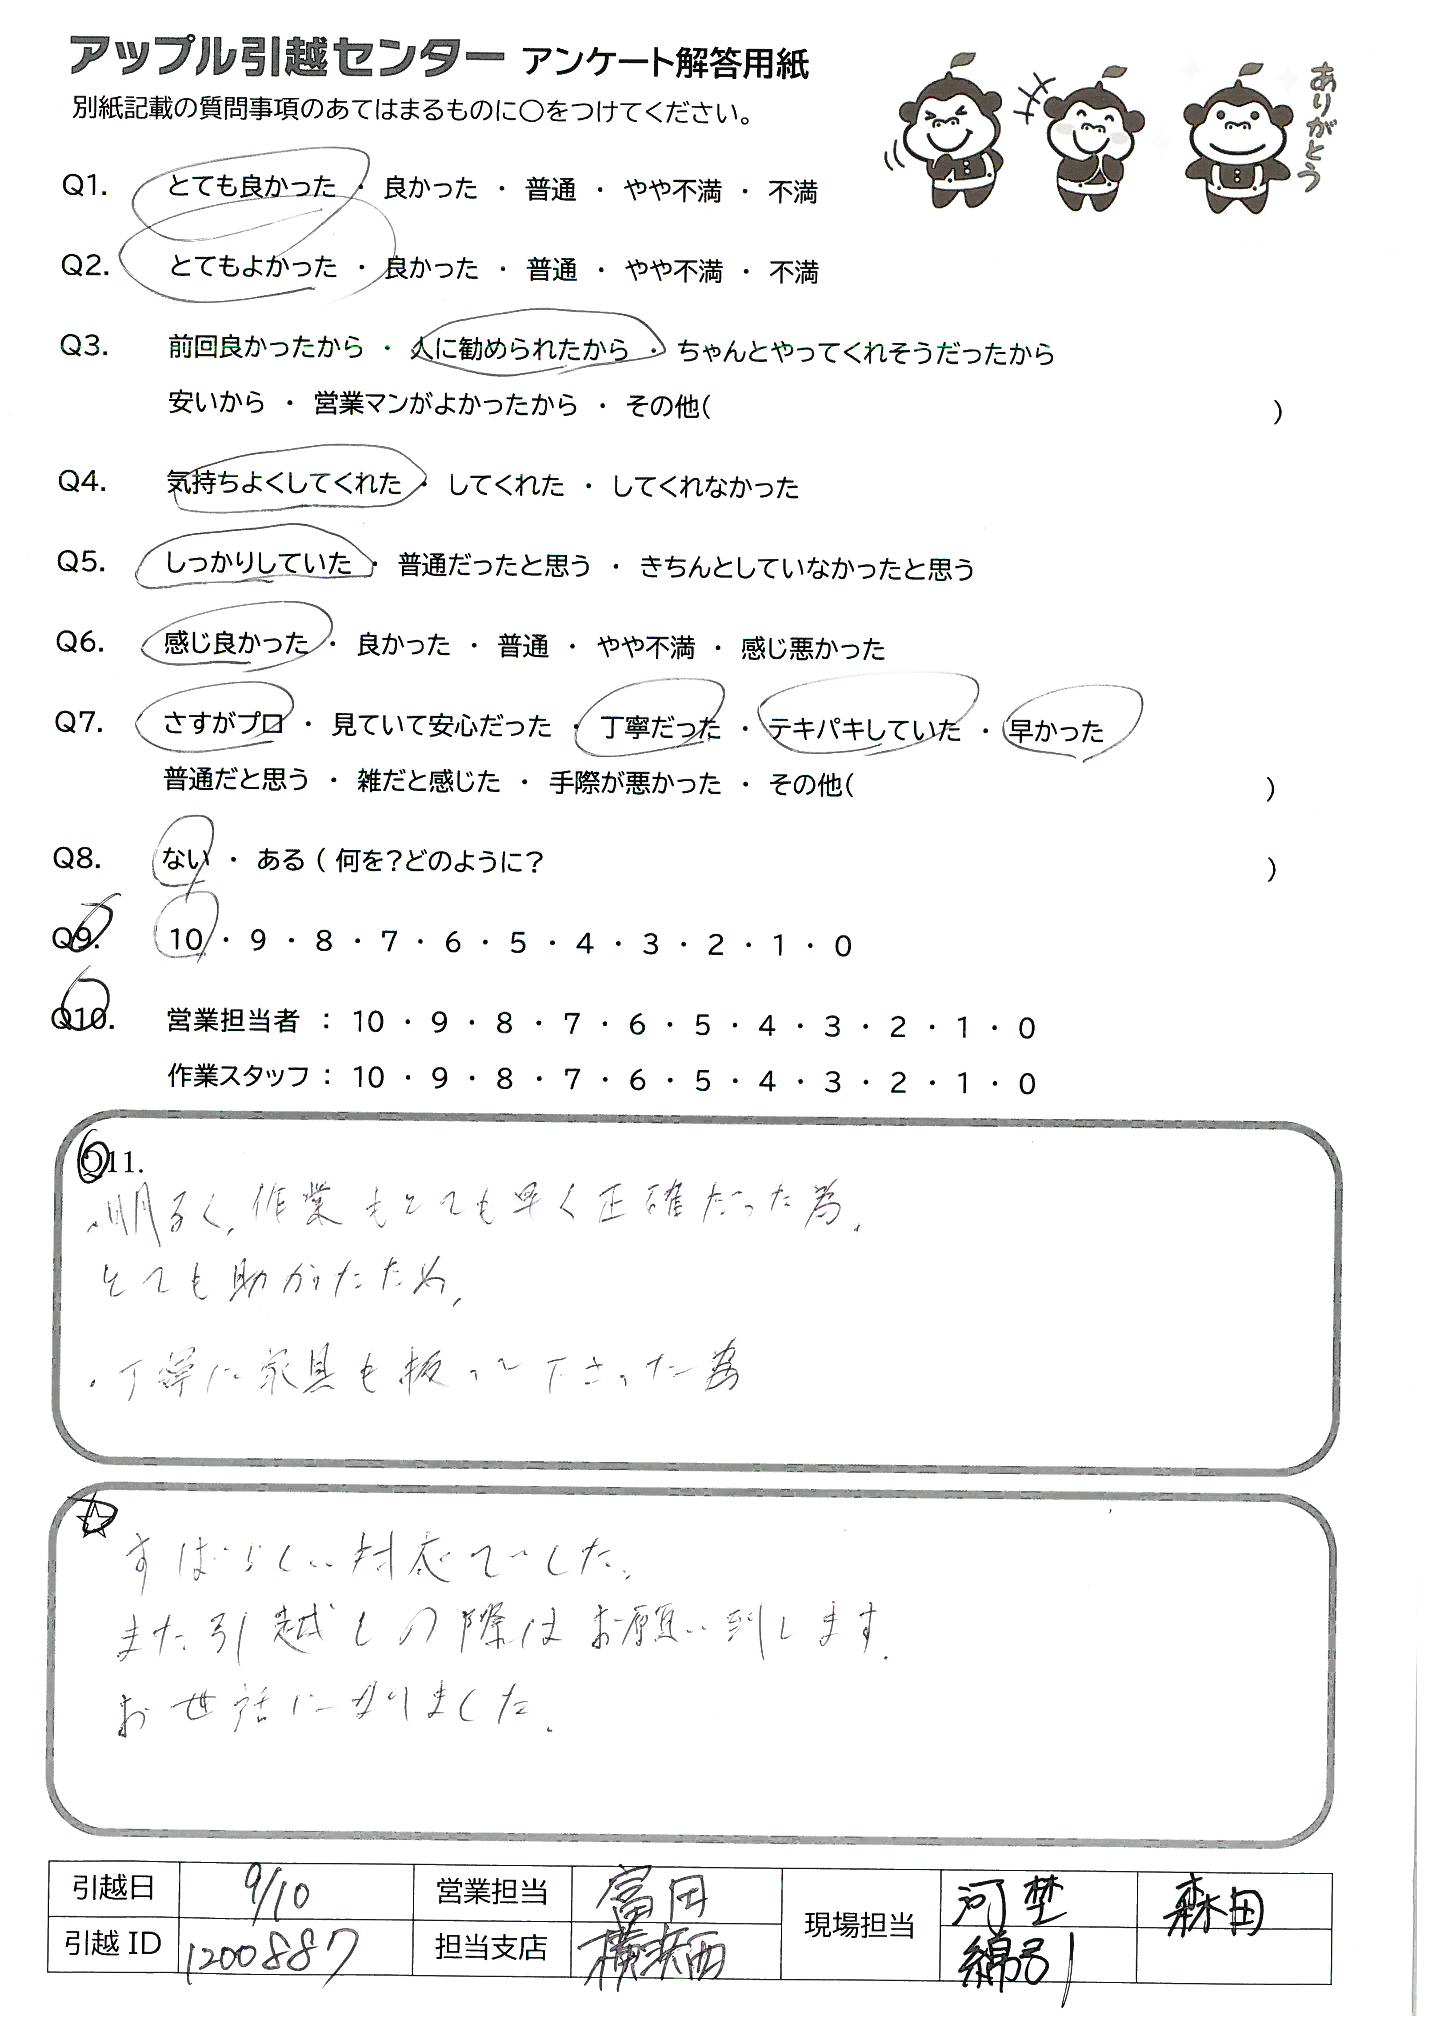 アップル引越センター アンケート解答用紙
別紙記載の質問事項のあてはまるものに〇をつけてください。
ありがとう
Q1. とても良かった ・ 良かった ・ 普通 ・ やや不満 ・ 不満
Q2. とてもよかった ・ 良かった ・ 普通 ・ やや不満 ・ 不満
Q3. 前回良かったから ・ 人に勧められたから ・ ちゃんとやってくれそうだったから
安いから ・ 営業マンがよかったから ・ その他( )
Q4. 気持ちよくしてくれた ・ してくれた ・ してくれなかった
Q5. しっかりしていた ・ 普通だったと思う ・ きちんとしていなかったと思う
Q6. 感じ良かった ・ 良かった ・ 普通 ・ やや不満 ・ 感じ悪かった
Q7. さすがプロ ・ 見ていて安心だった ・ 丁寧だった ・ テキパキしていた ・ 早かった
普通だと思う ・ 雑だと感じた ・ 手際が悪かった ・ その他( )
Q8. ない ・ ある ( 何を?どのように? )
Q9. 10 ・ 9 ・ 8 ・ 7 ・ 6 ・ 5 ・ 4 ・ 3 ・ 2 ・ 1 ・ 0
Q10. 営業担当者 : 10 ・ 9 ・ 8 ・ 7 ・ 6 ・ 5 ・ 4 ・ 3 ・ 2 ・ 1 ・ 0
作業スタッフ : 10 ・ 9 ・ 8 ・ 7 ・ 6 ・ 5 ・ 4 ・ 3 ・ 2 ・ 1 ・ 0
Q11.
・明るく、作業もとても早く正確だった為、
とても助かったため、
・丁寧に家具も扱って下さった為
☆
すばらしい対応でした。
また引越しの際はお願い致します。
お世話になりました。
引越日 9/10 営業担当 富田 現場担当 河埜 森田
引越 ID 1200887 担当支店 横浜西 綿引